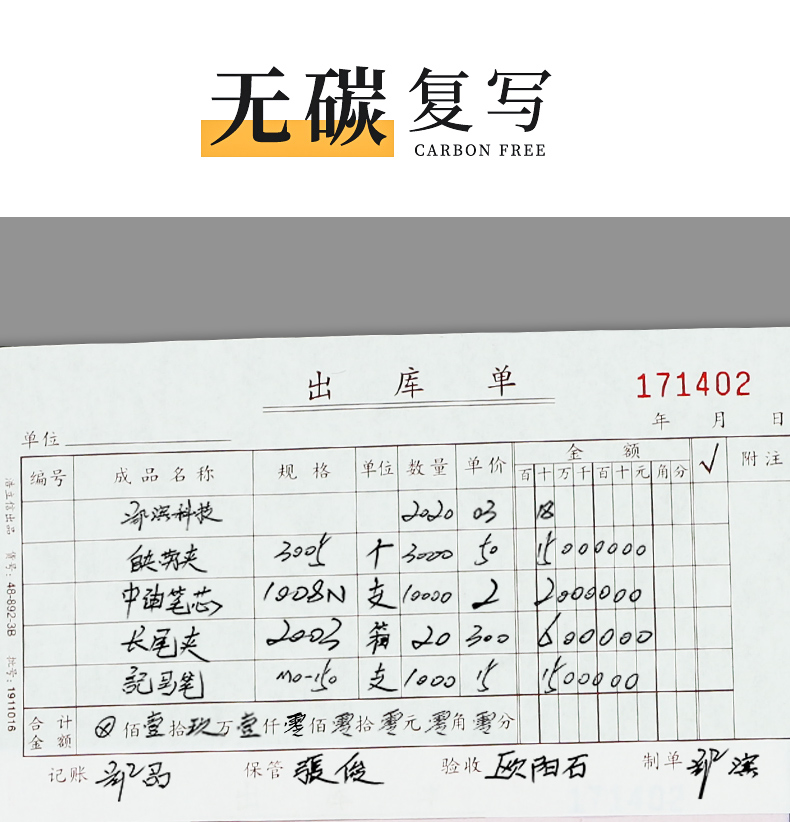 无碳复写
CARBON FREE
出库单
171402
年 月 日
单位
编号 成品名称 规格 单位 数量 单价 金额 √ 附注
百 十 万 千 百 十 元 角 分
科技 2020 03 18
夹 3005 个 3000 50 15000000
中油笔芯 1008N 支 10000 2 2000000
长尾夹 2003 箱 20 300 600000
記号笔 MO-150 支 1000 15 1500000
合计金额 ⊗佰壹拾玖万壹仟零佰零拾零元零角零分
记账 保管 張俊 验收 欧阳石 制单 邹滨
浩立信出品 货号:48-892-3B 批号:1911016
171402